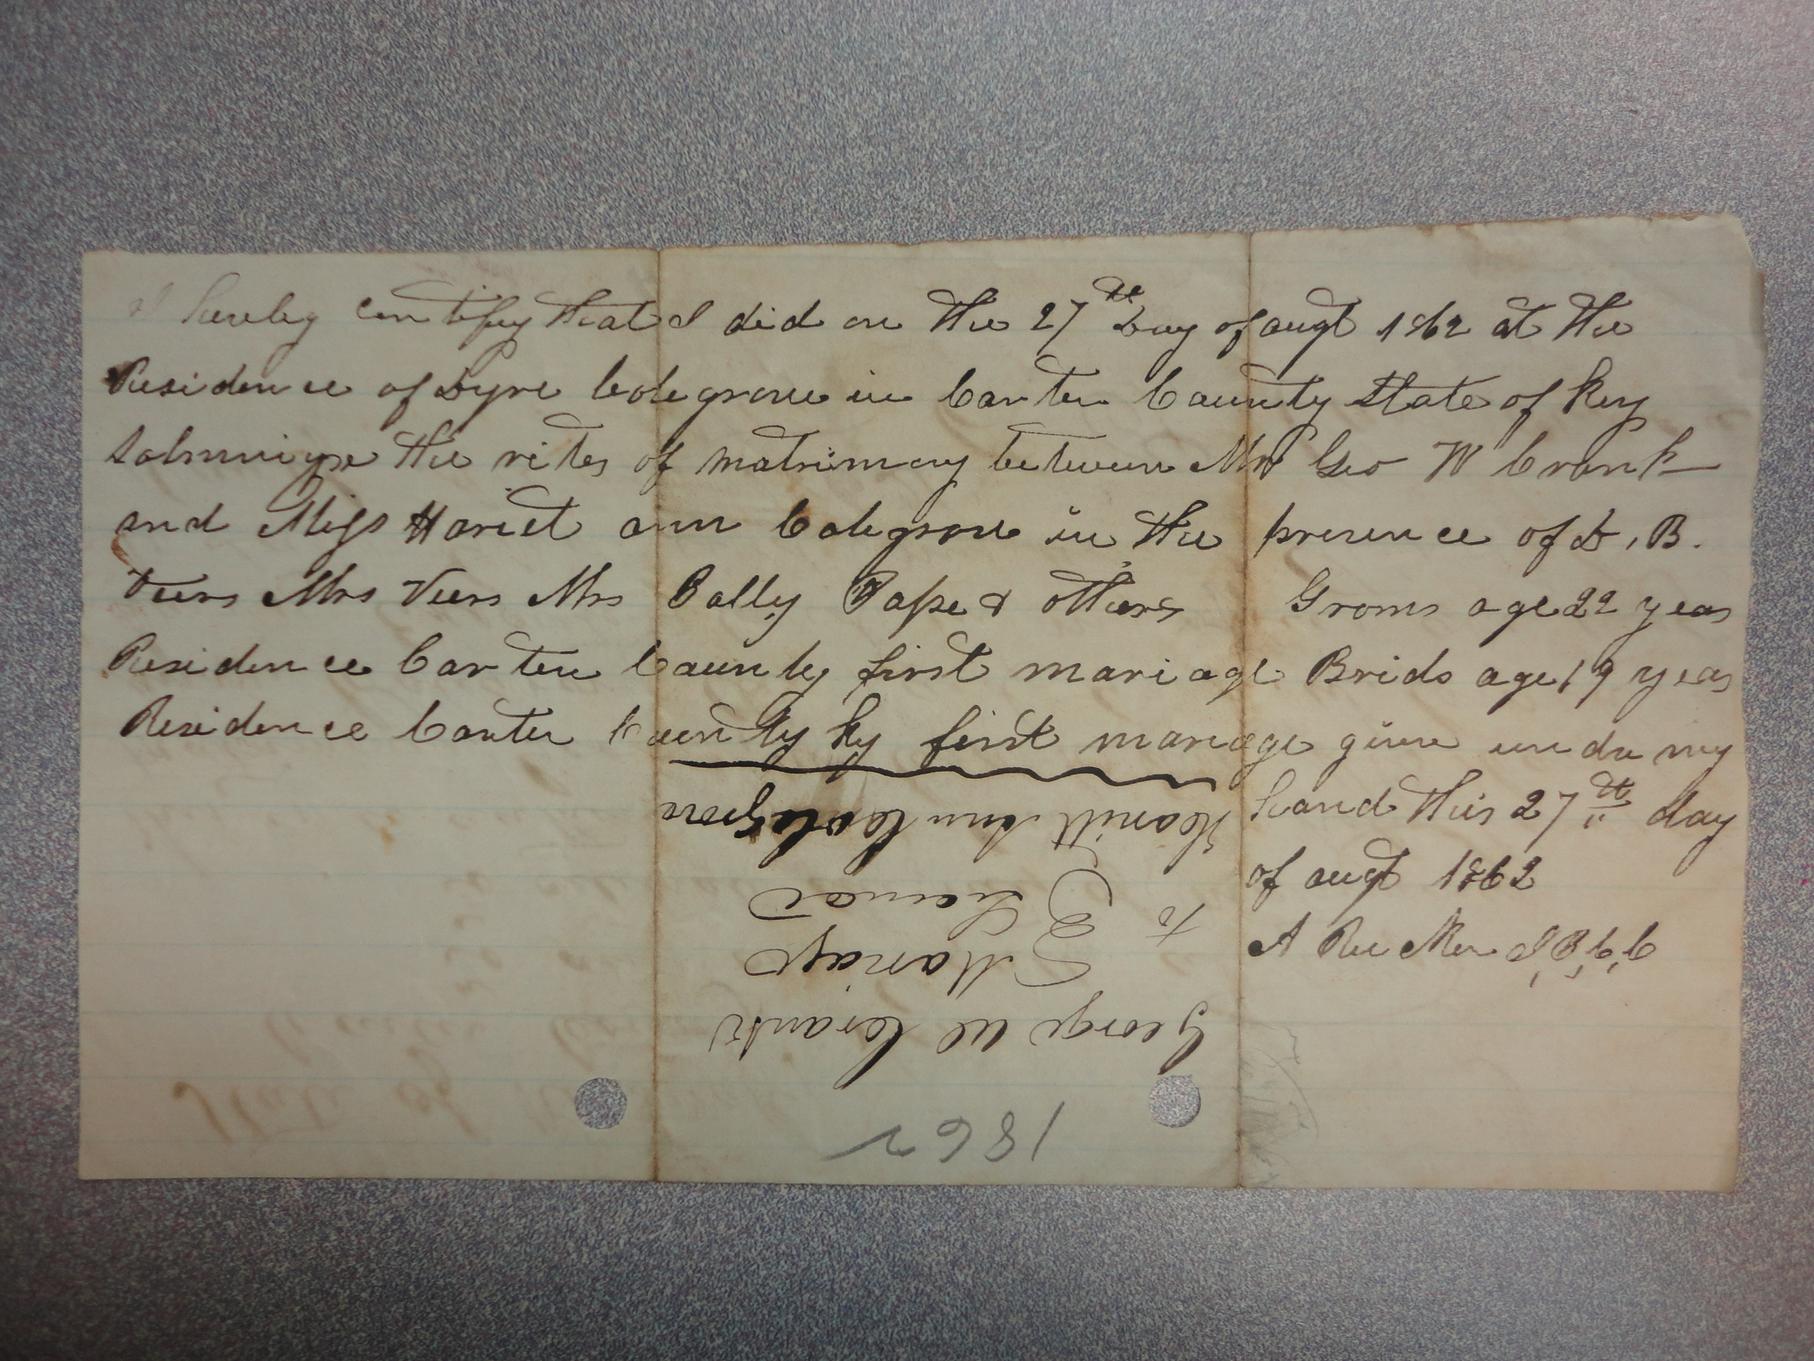 I hereby certify that I did on the 27th Day of augt 1862 at the
Residence of Dyre Colegrove in Carter County State of Key
Solmnize the rites of matrimony between Mr Geo W Crank
and Miss Hariet ann Colegrove in the presence of D, B.
Veers Mrs Veers Mrs Polly Pope & others Groms age 22 yeas
Residence Carter County first mariage Brids age 19 yeas
Residence Carter County Ky first mariage given under my
hand this 27th day
of augt 1862
A Ree
1862
George W Crank
to Mariage
License
Hariett Ann Colegrove
State of